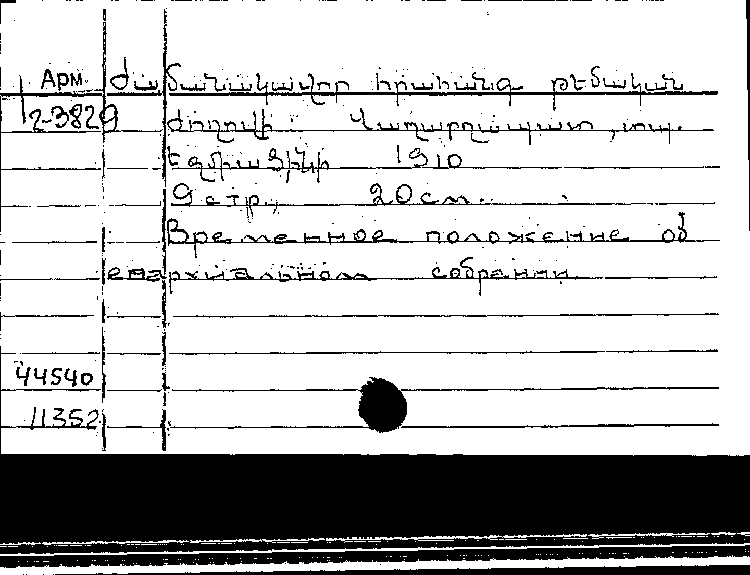 Арм Ժամանակավոր հրահանգ թեմական
12-3829 ժողովի Վաղարշապատ, տպ.
Էջմիածինի 1910
9 стр., 20 см.
Временное положение об
епархиальном собрании
44540
11352